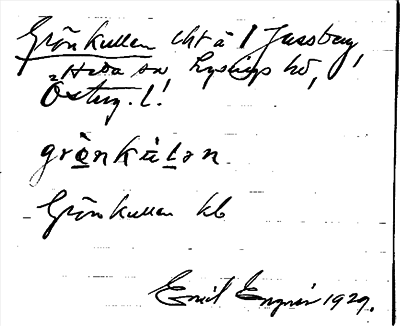 Grönkullen cht å 1 Jussberg,
Heda sn, Lysings hd,
Östug. l.
grö̀nkúlən
Grönkullen kb
Emil Engnér 1929.